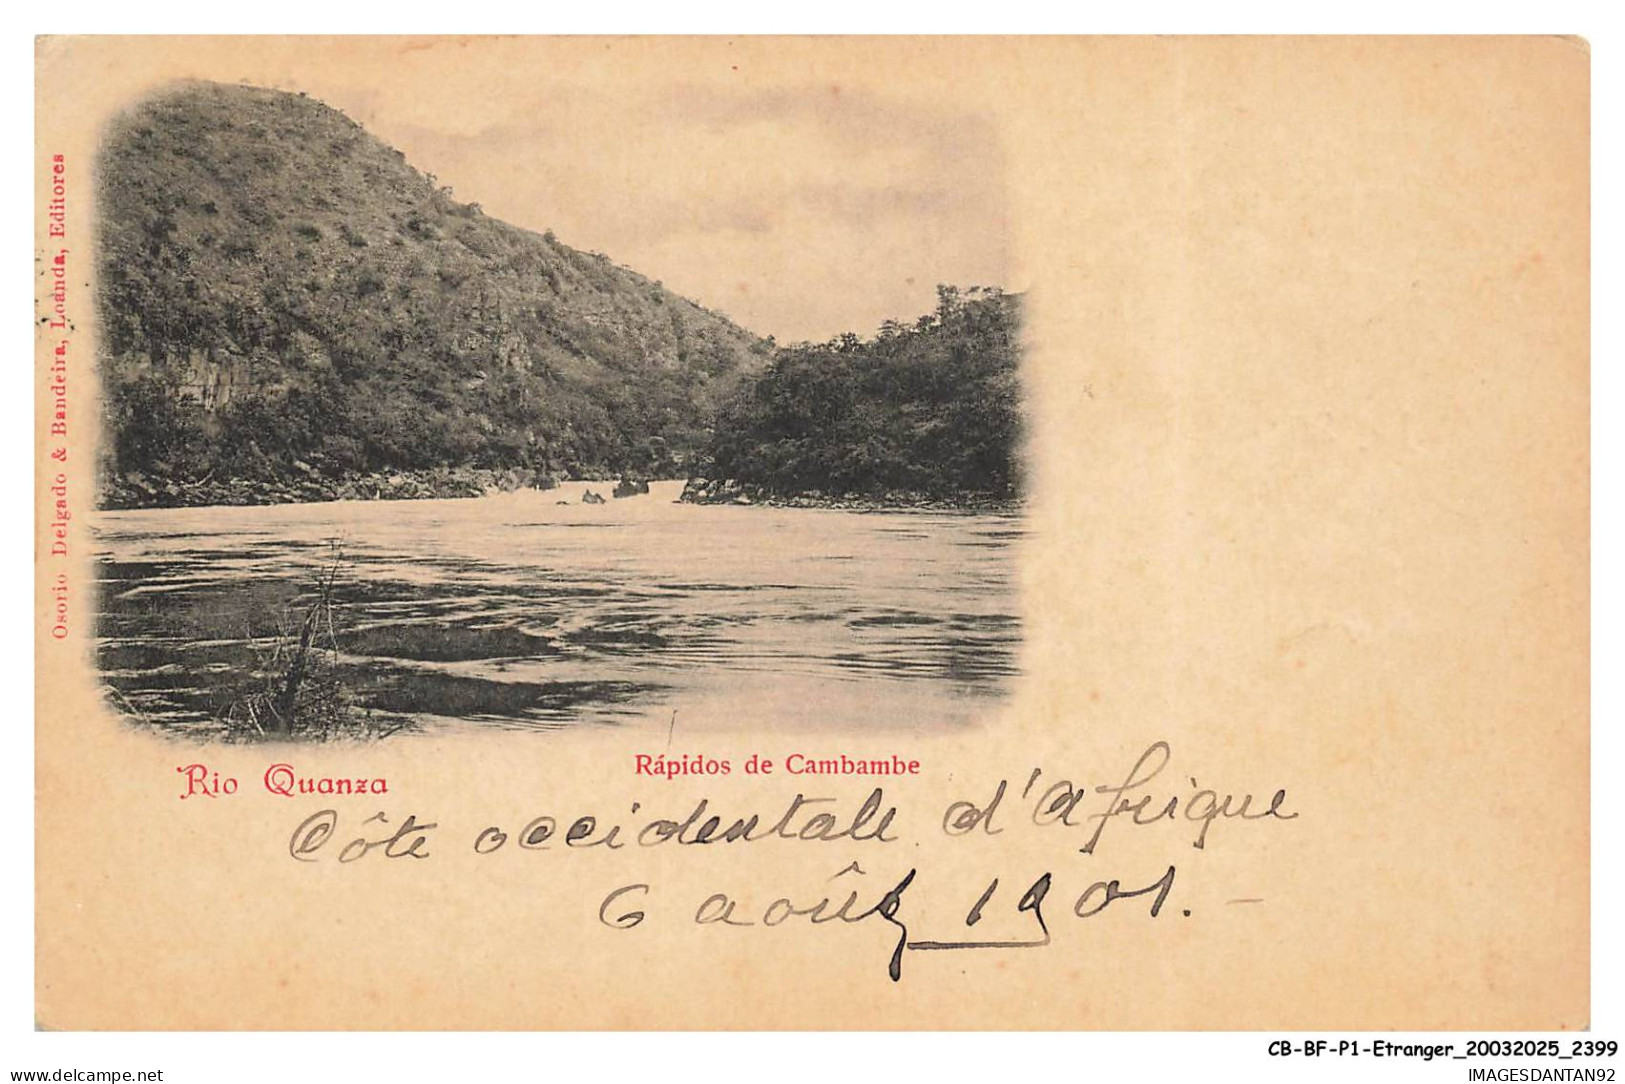 Osorio Delgado & Bandeira, Loanda, Editores
Rio Quanza
Rápidos de Cambambe
Côte occidentale d'Afrique
6 août 1901. -
CB-BF-P1-Etranger_20032025_2399
delcampe.net
IMAGESDANTAN92